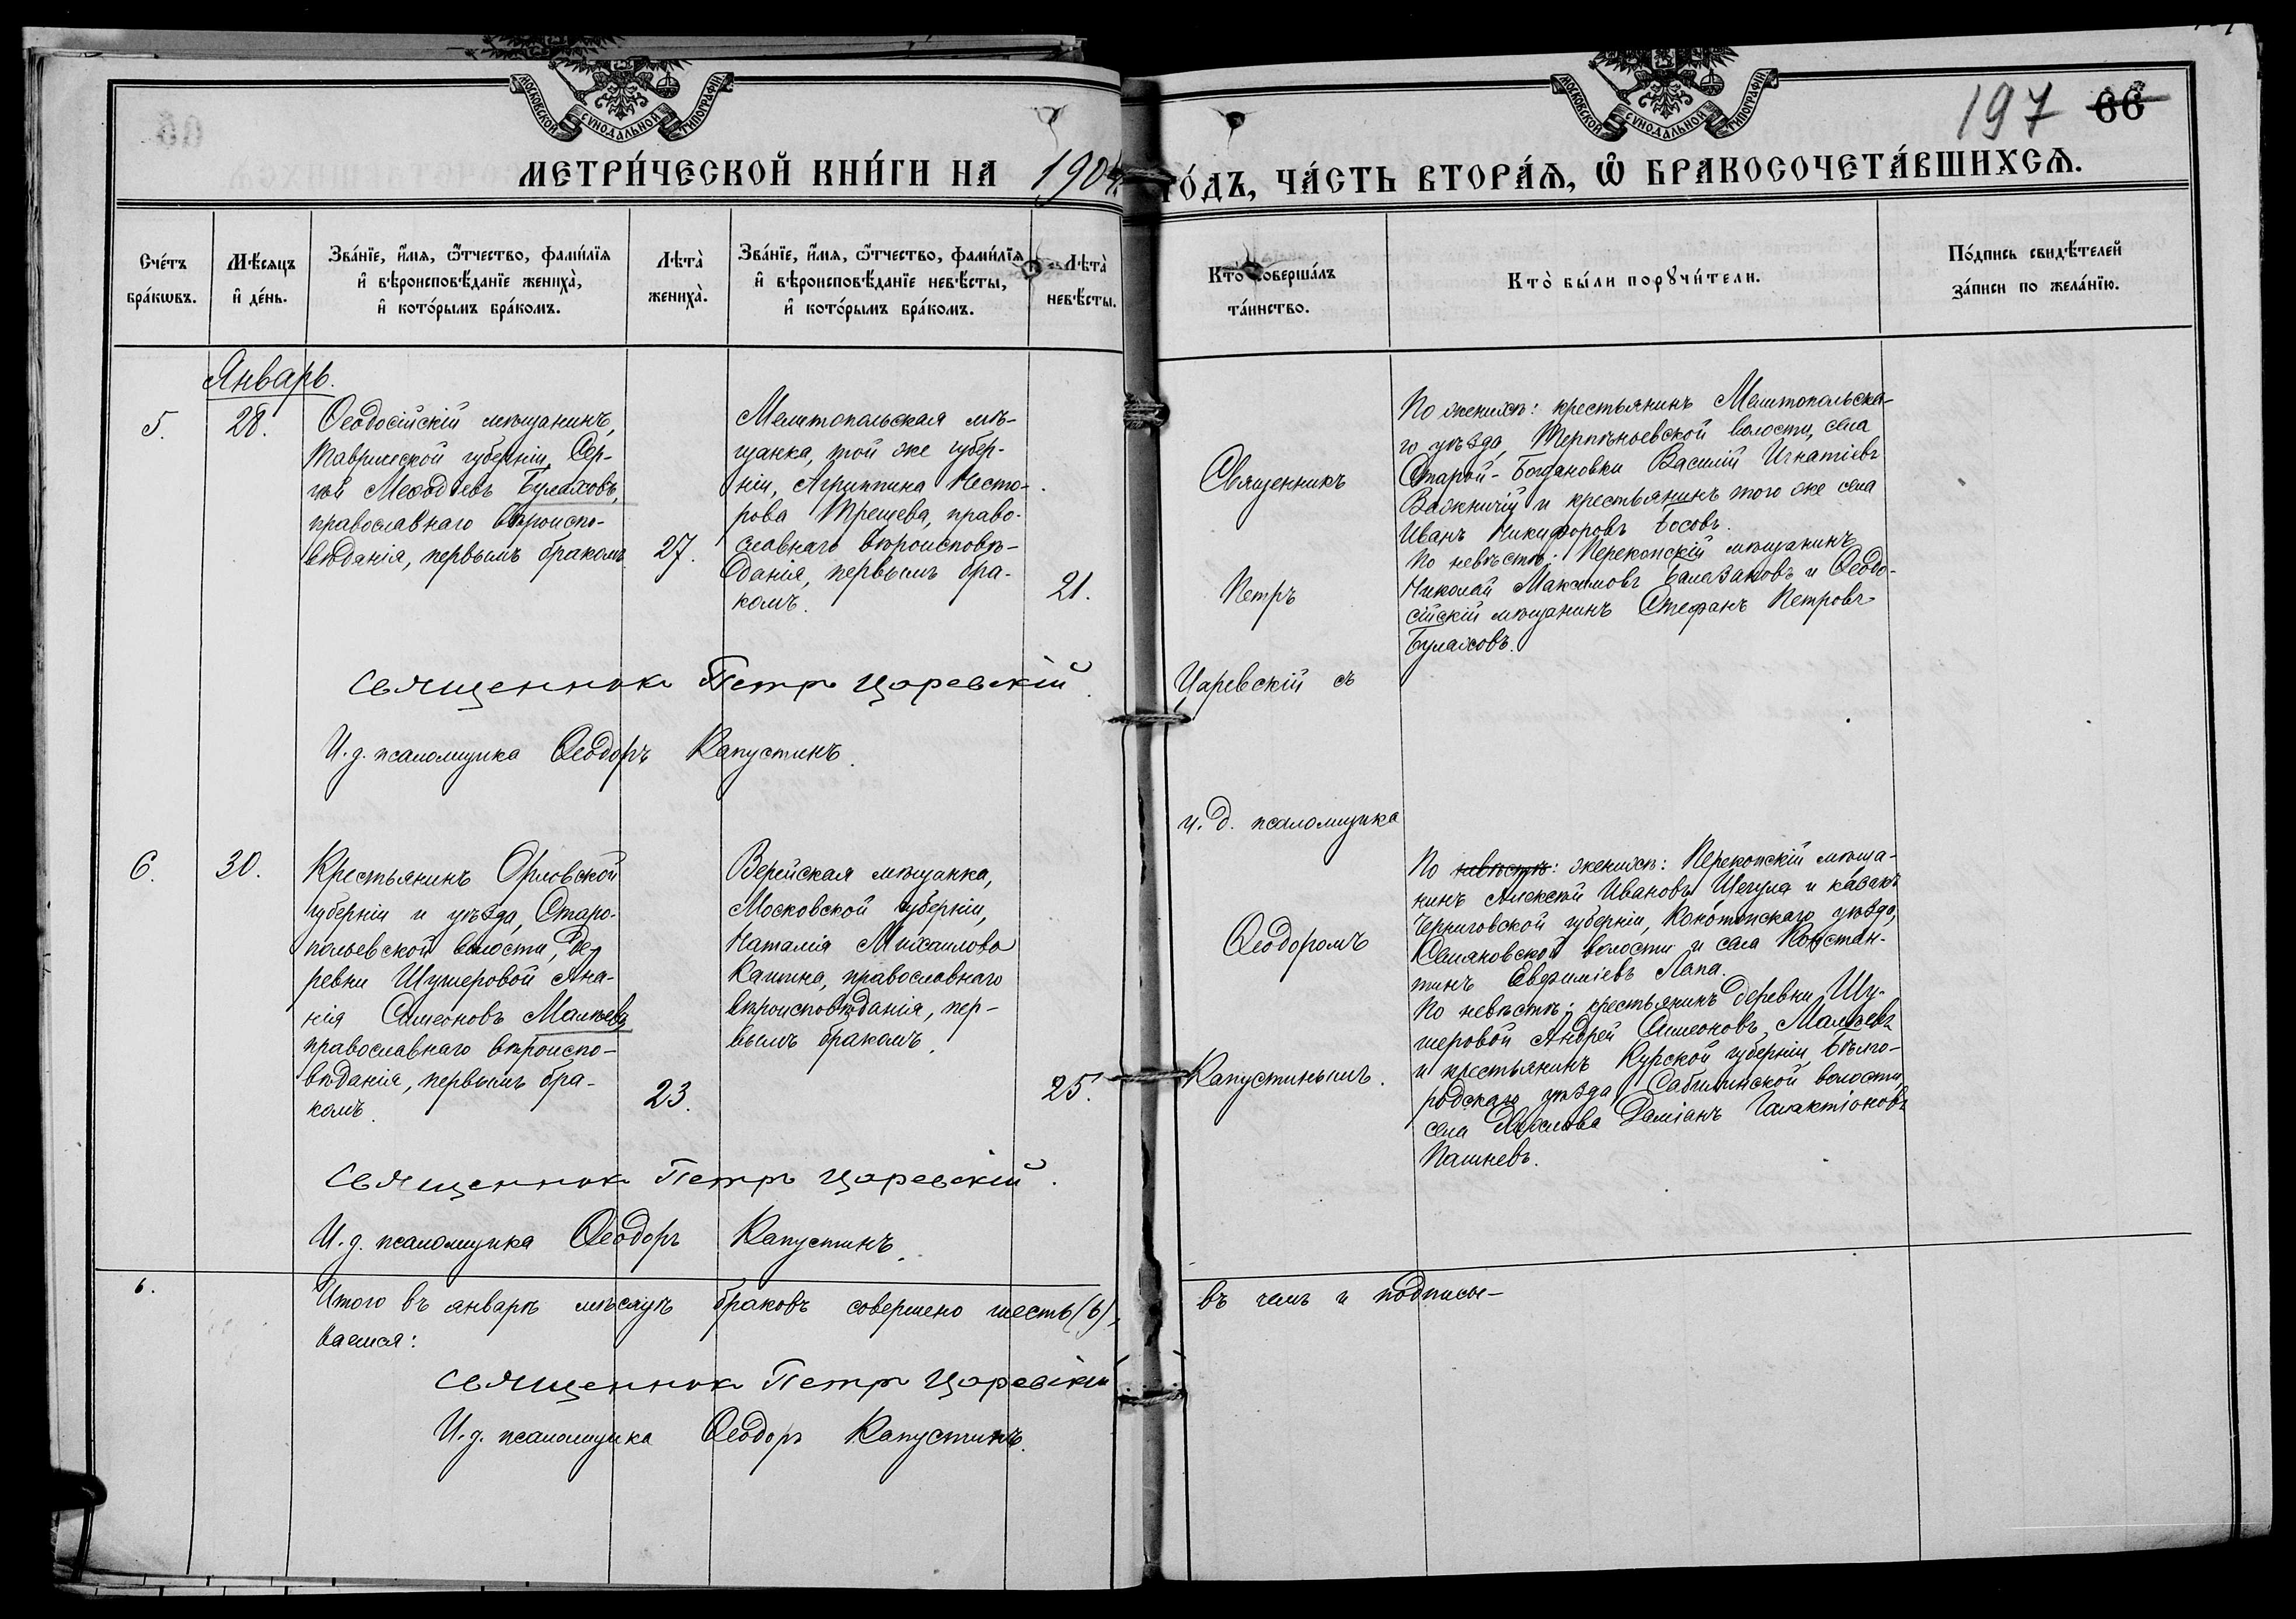 МОСКОВСКОЙ СУНОДАЛЬНОЙ ТИПОГРАФІИ
МОСКОВСКОЙ СУНОДАЛЬНОЙ ТИПОГРАФІИ
197 66
МЕТРИ́ЧЕСКОЙ КНИ́ГИ НА 1904 ГО́ДЪ, ЧА́СТЬ ВТОРА́Я, Ѡ҆ БРАКОСОЧЕТА́ВШИХСЯ.
Сче́тъ
бра́кѡвъ.
Мѣ́сяцъ
и҆ де́нь.
Зва́нїе, и҆́мя, ѻ҆́тчество, фами́лїя
и҆ вѣроисповѣ́данїе жениха̀,
и҆ кото́рымъ бра́комъ.
Лѣта̀
жениха̀.
Зва́нїе, и҆́мя, ѻ҆́тчество, фами́лїя
и҆ вѣроисповѣ́данїе невѣ́сты,
и҆ кото́рымъ бра́комъ.
Лѣта̀
невѣ́сты.
Кто̀ соверша́лъ
та́инство.
Кто̀ бы́ли порꙋчи́тели.
По́дпись свидѣ́телей
за́писи по жела́нїю.
Январь.
5.
28.
Ѳеодосійскій мѣщанинъ,
Таврической губерніи, Сер-
гѣй Меѳодіевъ Булаховъ,
православнаго вѣроиспо-
вѣданія, первымъ бракомъ.
27.
Мелитопольская мѣ-
щанка, той же губер-
ніи, Агриппина Несто-
рова Трещева, право-
славнаго вѣроисповѣ-
данія, первымъ бра-
комъ.
21.
Священникъ
Петръ
Царевскій съ
и. д. псаломщика
Ѳеодоромъ
Капустинымъ.
По женихѣ: крестьянинъ Мелитопольска-
го уѣзда, Терпѣньевской волости, села
Старой-Богдановки Василій Игнатіевъ
Важничій и крестьянинъ того же села
Иванъ Никифоровъ Босовъ.
По невѣстѣ: Перекопскій мѣщанинъ
Николай Максимовъ Балазановъ и Ѳеодо-
сійскій мѣщанинъ Стефанъ Петровъ
Булаховъ.
Священник Петр Царевскій.
И. д. псаломщика Ѳеодоръ Капустинъ.
6.
30.
Крестьянинъ Орловской
губерніи и уѣзда, Старо-
польевской волости, де-
ревни Шумеровой Ана-
нія Симеоновъ Малѣевъ
православнаго вѣроиспо-
вѣданія, первымъ бра-
комъ.
23.
Верейская мѣщанка,
Московской губерніи,
Наталія Михаилова
Капина, православнаго
вѣроисповѣданія, пер-
вымъ бракомъ.
25.
По невѣстѣ: женихѣ: Перекопскій мѣща-
нинъ Алексѣй Ивановъ Шегула и казакъ
Черниговской губерніи, Конотопскаго уѣзда,
волости и села Констан-
тинъ Евфиміевъ Лапа.
По невѣстѣ: крестьянинъ деревни Шу-
меровой Андрей Симеоновъ Малѣевъ
и крестьянинъ Курской губерніи, Бѣлго-
родскаго уѣзда, Сабынинской волости,
села Даміанъ Галактіоновъ
Пашневъ.
Священник Петр Царевскій.
И. д. псаломщика Ѳеодоръ Капустинъ.
6.
Итого въ январѣ мѣсяцѣ браковъ совершено шесть (6), въ чемъ и подписы-
ваемся:
Священник Петр Царевскій
И. д. псаломщика Ѳеодоръ Капустинъ.